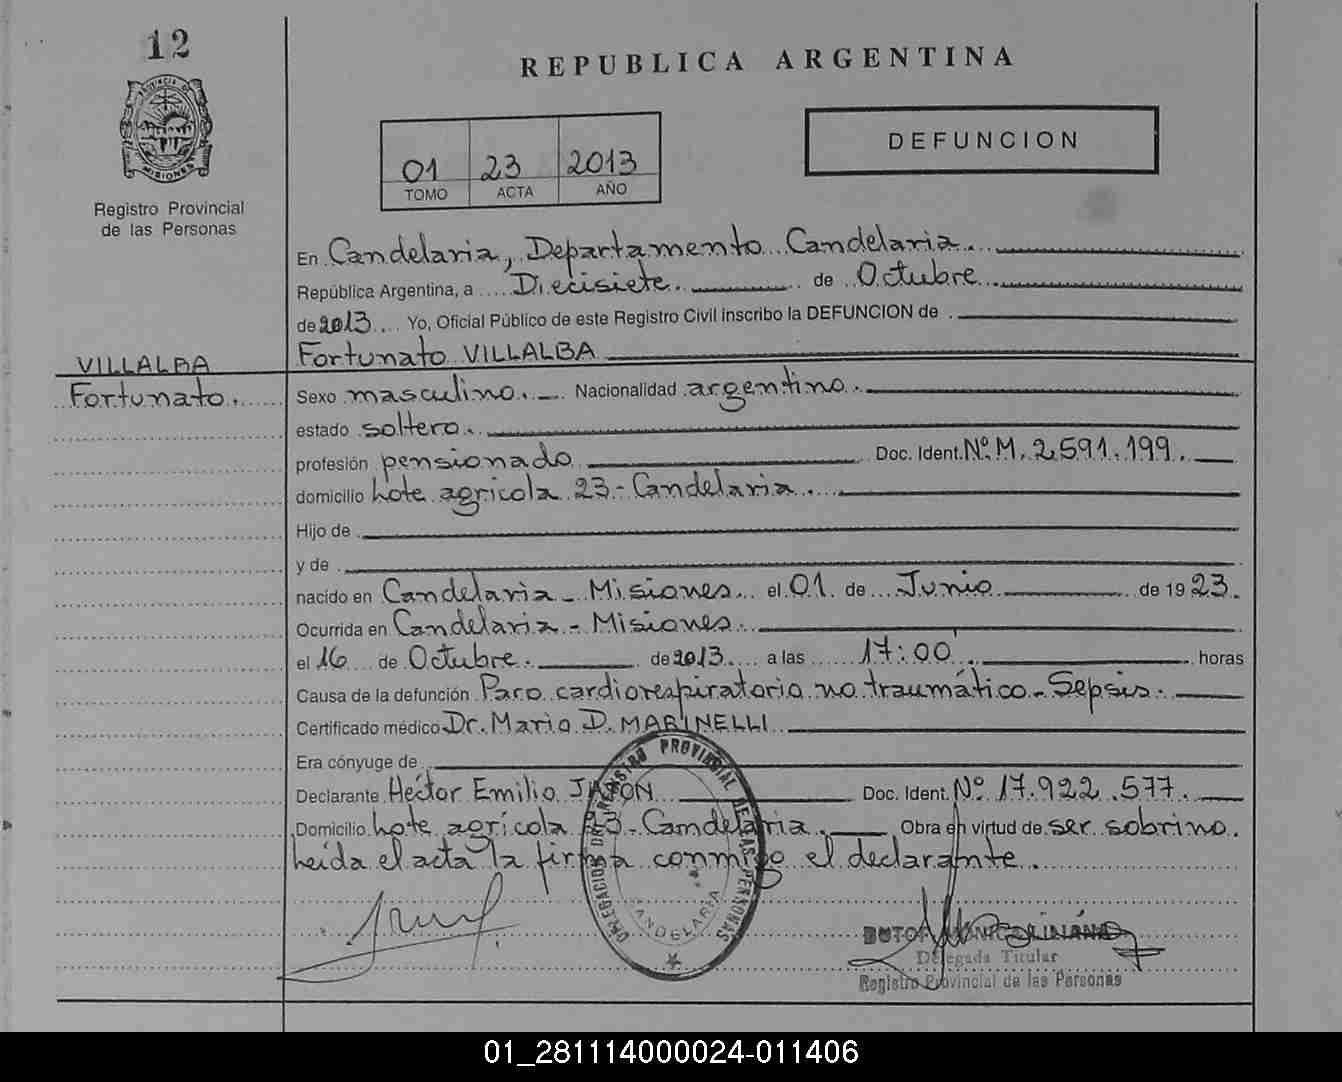 12
PROVINCIA DE
MISIONES
Registro Provincial
de las Personas
REPUBLICA ARGENTINA
01 23 2013
TOMO ACTA AÑO
DEFUNCION
En Candelaria, Departamento Candelaria.
República Argentina, a Diecisiete. de Octubre
de 2013 Yo, Oficial Público de este Registro Civil inscribo la DEFUNCION de
VILLALBA Fortunato VILLALBA
Fortunato. Sexo masculino. Nacionalidad argentino.
estado soltero.
profesión pensionado Doc. Ident. Nº M. 2.591.199.
domicilio Lote agrícola 23 - Candelaria.
Hijo de
y de
nacido en Candelaria - Misiones el 01 de Junio de 1923.
Ocurrida en Candelaria - Misiones.
el 16 de Octubre. de 2013 a las 17:00 horas
Causa de la defunción Paro cardiorespiratorio no traumático - Sepsis.
Certificado médico Dr. Mario D. MARINELLI
Era cónyuge de
Declarante Héctor Emilio Doc. Ident. Nº 17.922.577.
Domicilio Lote agrícola 23 - Candelaria. Obra en virtud de ser sobrino.
Leída el acta la firma conmigo el declarante.
DELEGACION DEL REGISTRO PROVINCIAL DE LAS PERSONAS
CANDELARIA
Delegada Titular
Registro Provincial de las Personas
01_281114000024-011406